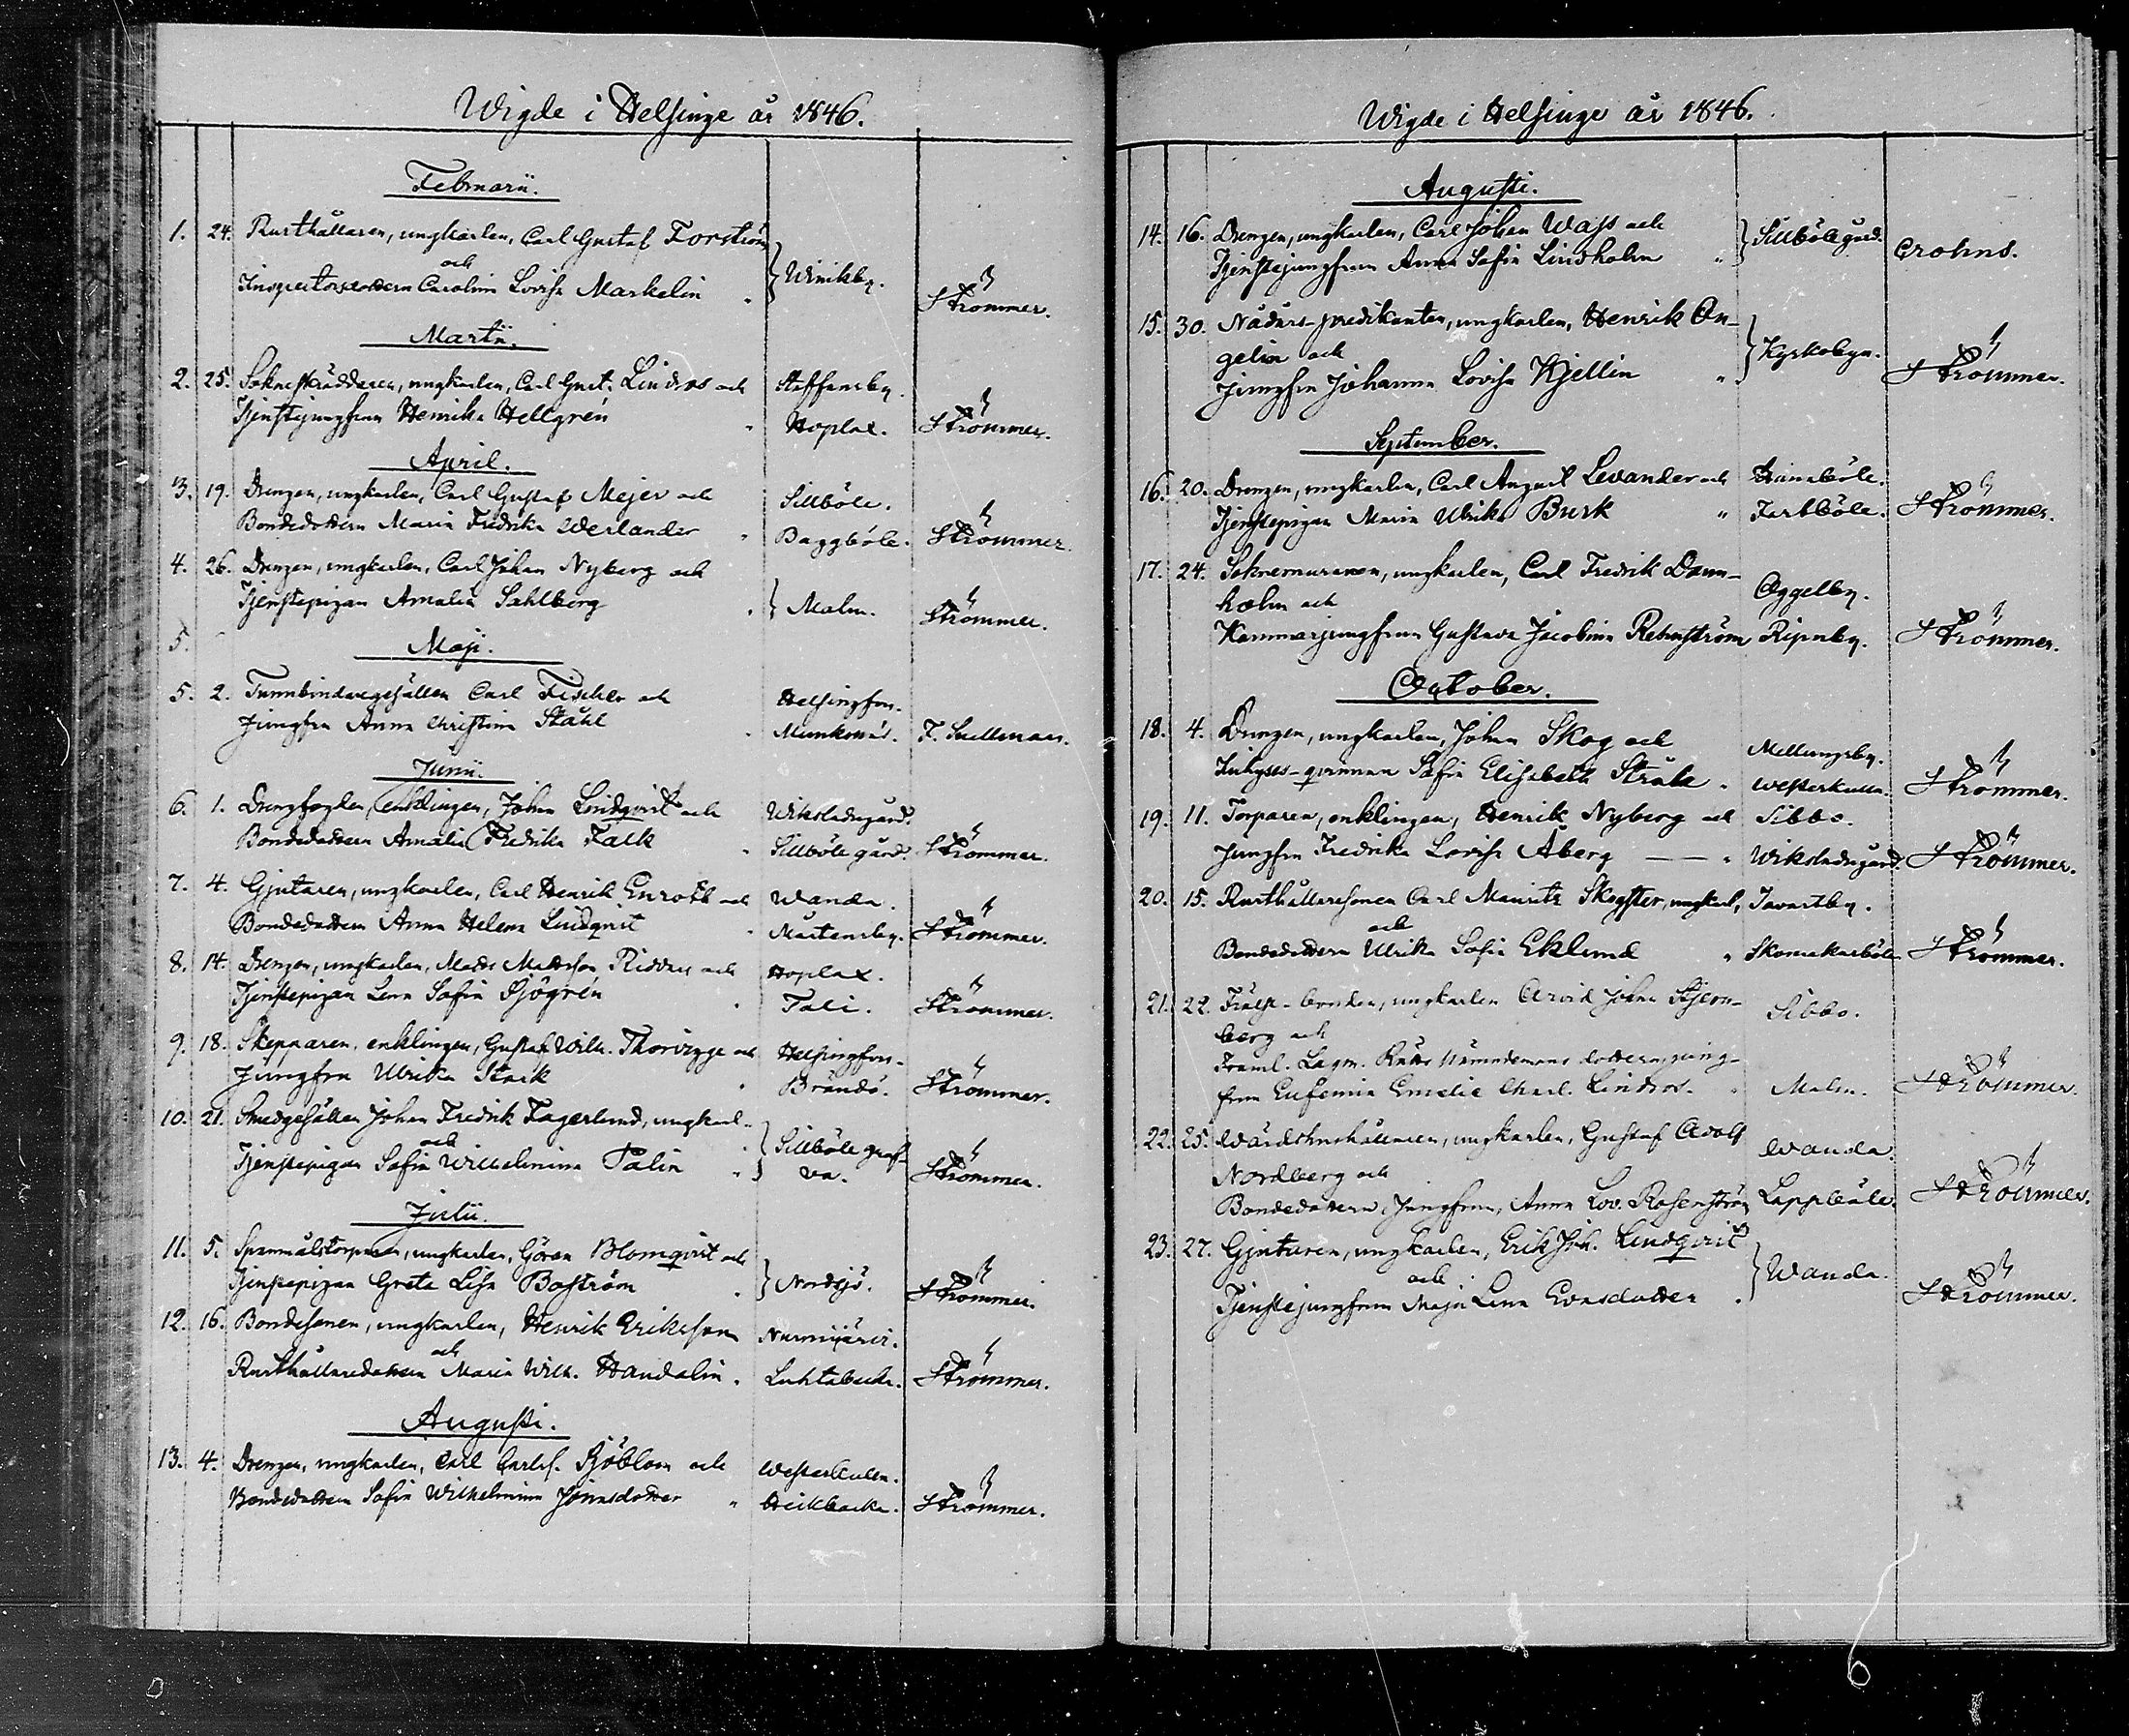 Wigde i Helsinge år 1846.
Februarii.
1. 24. Rusthållaren, ungkarlen, Carl Gustaf Forström
och
Inspectorsdottern Carolina Lovisa Markelin " } Winikby. Strömmer.
Martii.
2. 25. Sokneskräddaren, ungkarlen, Carl Gust. Lindros och Staffansby.
Tjenstejungfrun Henrika Hellgrén " Hoplax. Strömmer.
April.
3. 19. Drengen, ungkarlen, Carl Gustaf Mejer och Sillböle.
Bondedottern Maria Fredrika Werlander " Baggböle. Strömmer.
4. 26. Drengen, ungkarlen, Carl Johan Nyberg och
Tjenstepigan Amalia Sahlberg " } Malm. Strömmer.
5.
Maji.
5. 2. Tunnbindaregesällen Carl Fischer och Helsingfors.
Jungfru Anna Christina Ståhl " Munksnäs. F. Snellman.
Junii.
6. 1. Drengfogden, enklingen, Johan Lindqvist och Wiksladugård.
Bondedottern Amalia Fredrika Falk " Sillböle gård. Strömmer.
7. 4. Gjutaren, ungkarlen, Carl Henrik Enroth och Wanda.
Bondedottern Anna Helena Lindqvist " Mårtensby. Strömmer.
8. 14. Drengen, ungkarlen, Matts Mattsson Riddar och Hoplax.
Tjenstepigan Lena Sofia Sjögrén " Tali. Strömmer.
9. 18. Skepparen, enklingen, Gustaf Wilh. Thorvigge och Helsingfors.
Jungfru Ulrika Stark " Brändö. Strömmer.
10. 21. Smedgesällen Johan Fredrik Fagerlund, ungkarl
och
Tjenstepigan Sofia Wilhelmina Palin " } Sillböle grufva. Strömmer.
Julii.
11. 5. Spanmålstorparen, ungkarlen, Göran Blomqvist och
Tjenstepigan Greta Lisa Boström " } Nordsjö. Strömmer.
12. 16. Bondesonen, ungkarlen, Henrik Eriksson Nurmijärvi.
och
Rusthållaredottern Maria Wilh. Handolin " Luhtabacka. Strömmer.
Augusti.
13. 4. Drengen, ungkarlen, Carl Carlss. Sjöblom och Westerkulla.
Bondedottern Sofia Wilhelmina Jönnsdotter " Heikbacka. Strömmer.
Wigde i Helsinge år 1846.
Augusti.
14. 16. Drengen, ungkarlen, Carl Johan Wass och
Tjenstejungfrun Anna Sofia Lindholm " } Sillböle gård. Crohns.
15. 30. Nådårs-predikanten, ungkarlen, Henrik On-
gelin och
Jungfru Johanna Lovisa Kjellin " } Kyrkobyn. Strömmer.
September.
16. 20. Drengen, ungkarlen, Carl August Levander och Hanaböle.
Tjenstepigan Maria Ulrika Busk " Fastböle. Strömmer.
17. 24. Soknemuraren, ungkarlen, Carl Fredrik Dann-
holm och Oggelby.
Kammarjungfrun Gustava Jacobina Rehnström Ripuby. Strömmer.
October.
18. 4. Drengen, ungkarlen, Johan Skog och Mellungsby.
Inhyses-qvinnan Sofia Elisabeth Stråle " Westerkulla. Strömmer.
19. 11. Torparen, enklingen, Henrik Nyberg och Sibbo.
Jungfru Fredrika Lovisa Åberg " Wiksladugård. Strömmer.
20. 15. Rusthållaresonen Carl Mauritz Skogster, ungkarl, Tavastby.
och
Bondedottern Ulrika Sofia Eklund " Skomakarböle Strömmer.
21. 22. Frälse-bonden, ungkarlen Arvid Johan Stjern-
berg och Sibbo.
Framl. Lagm. Rätts Nämndemans dottern, jung-
frun Eufemia Emelie Charl. Lindros. " Malm. Strömmer.
22. 25. Wärdshushållaren, ungkarlen, Gustaf Adolf
Nordberg och Wanda.
Bondedottern, Jungfrun, Anna Lov. Rosenström Lappböle. Strömmer.
23. 27. Gjutaren, ungkarlen, Erik Joh. Lindqvist
och
Tjenstejungfrun Maja Lena Evasdotter " } Wanda. Strömmer.